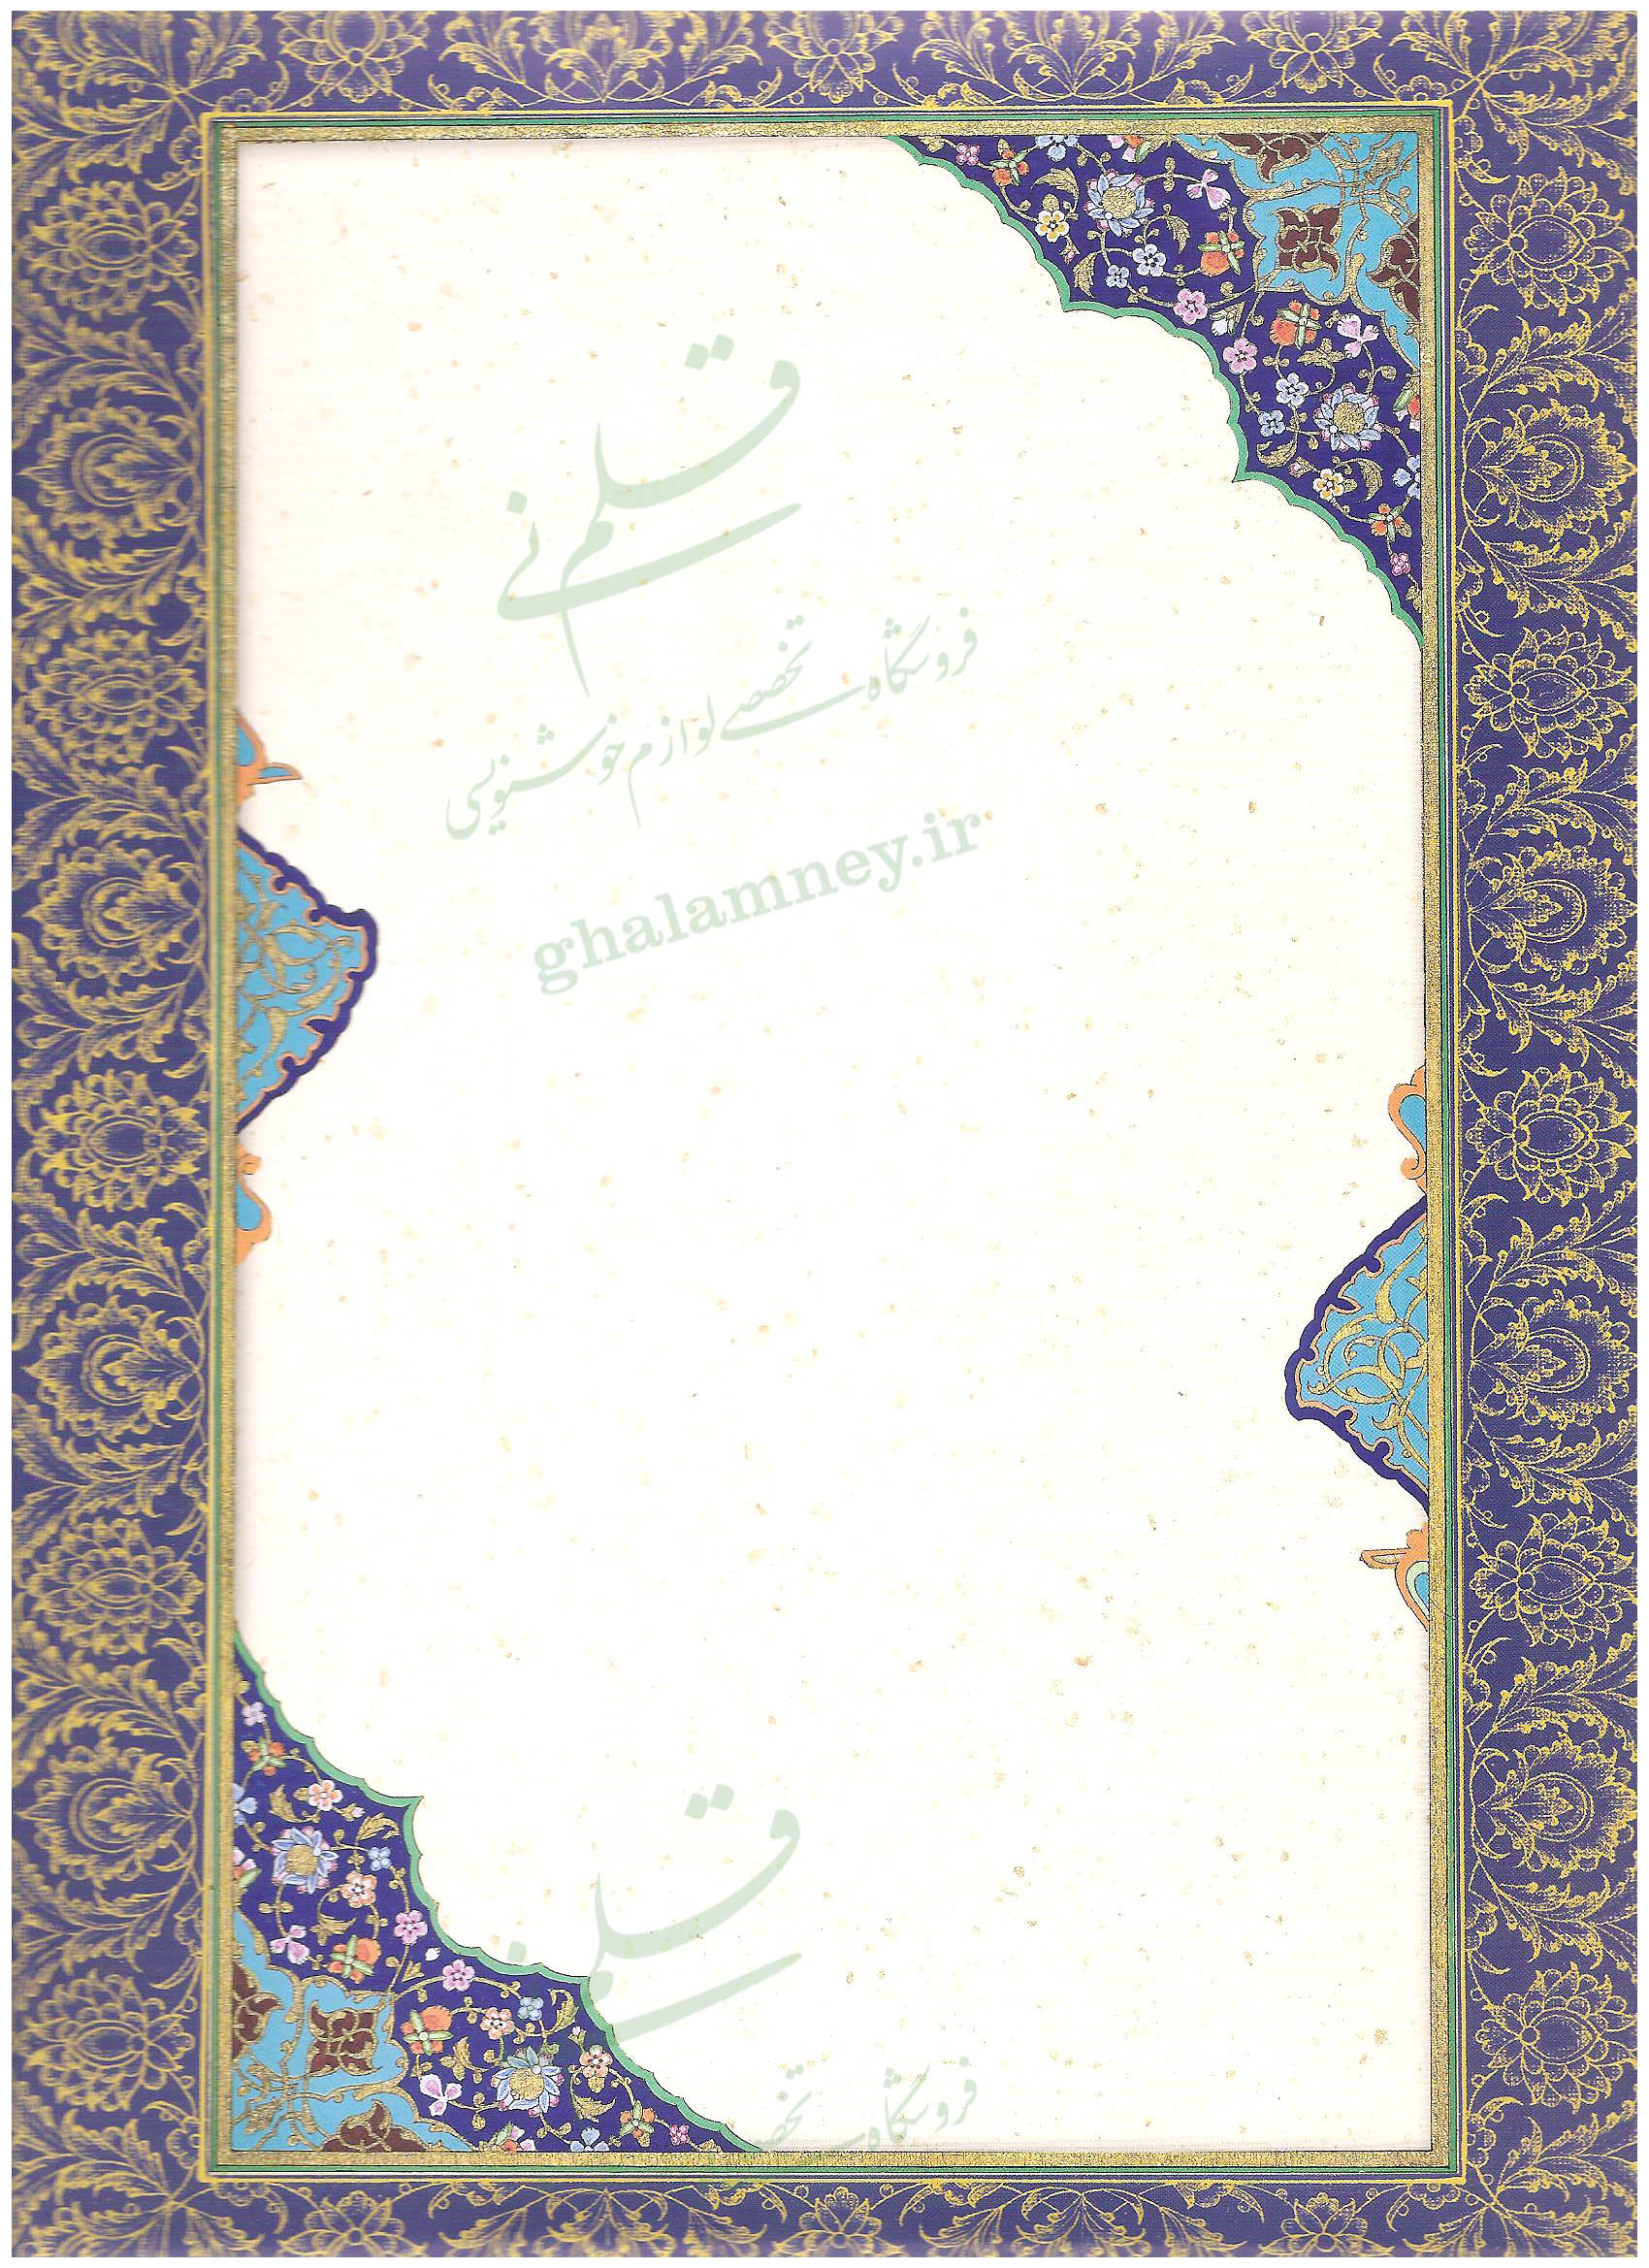 قلم نی
فروشگاه تخصصی لوازم خوشنویسی
ghalamney.ir
قلم
فروشگاه